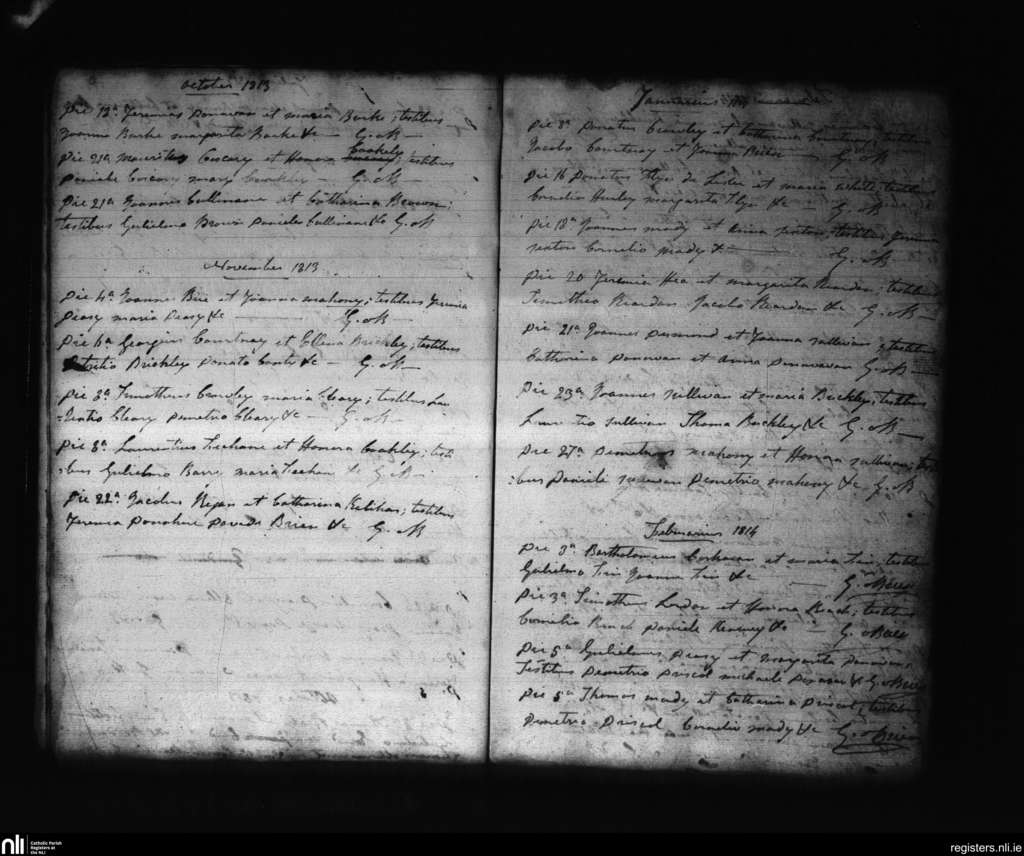 October 1813
Die 12a Jeremias Donovan et maria Burke; testibus
Joanne Burke margarita Burke &c G. oB
Die 21a Mauritius et Honora Coakely; testibus
Daniele mary &c G. oB
Die 21a Joannes Cullinane et Catharina Brown;
testibus Gulielmo Brown Daniele Cullinane &c G. oB
November 1813
Die 4a Joannes et Joanna mahony; testibus Jeremia
Deasy maria Deasy &c G. oB
Die 6a Georgius Courtney et Ellena Brickley; testibus
Brickley Donato &c G. oB
Die 8a Timotheus Crowley maria Cleary; testibus Lau
-rentio Cleary Demetrio Cleary &c G. oB
Die 8a Laurentius Leehane et Honora Coakley; testi
bus Gulielmo Barry maria Leehan &c G. oB
Die 22a Jacobus Regan et Catharina; testibus
Jeremia Donohue Davide Brien &c G. oB
Januarius 1814
Die 8a Donatus Crowley et Catharina Courtney; testibus
Jacobo Courtney et Joanna G. oB
Die 16 Donatus et maria White; testibus
Cornelio Hurley margarita &c G. oB
Die 18a Joannes mady et Anna Sexton; testibus Jeremia
Sexton Cornelio mady & G. oB
Die 20 Jeremia Hea et margarita Reardon; testibus
Timotheo Reardon Jacobo Reardon &c G. oB
Die 21a Joannes Desmond et Joanna Sullivan; testibus
Catharina Donovan et Anna Donovan G. oB
Die 23a Joannes Sullivan et maria Buckley; testibus
Laurentio Sullivan Thoma Buckley &c G. oB
Die 27a Demetrius mahony et Honora Sullivan; tes
bus Daniele Demetrio mahony &c G. oB
Februarius 1814
Die 3a Bartholomeus Corkeran et maria; testibus
Gulielmo Joanna &c G. oBrien
Die 3a Timotheus Lordan et Honora Roach; testibus
Cornelio Roach Daniele &c G. oBrien
Die 5a Gulielmus Deasy et margarita Donovan;
Testibus Demetrio Driscol michaele Donovan & G. oBrien
Die 5a Thomas mady et Catharina Driscol; testibus
Demetrio Driscol Cornelio mady &c G. oBrien
nli
Catholic Parish
Registers at
the NLI
registers.nli.ie